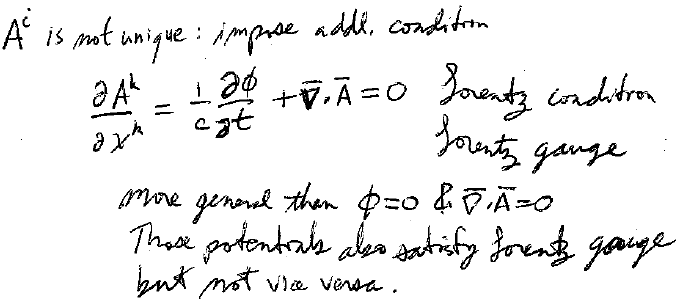 A^i is not unique : impose addl. condition
∂A^k/∂x^k = 1/c ∂φ/∂t + ∇̄·Ā = 0 Lorentz condition
Lorentz gauge
more general than φ=0 & ∇̄·Ā=0
Those potentials also satisfy Lorentz gauge
but not vice versa.